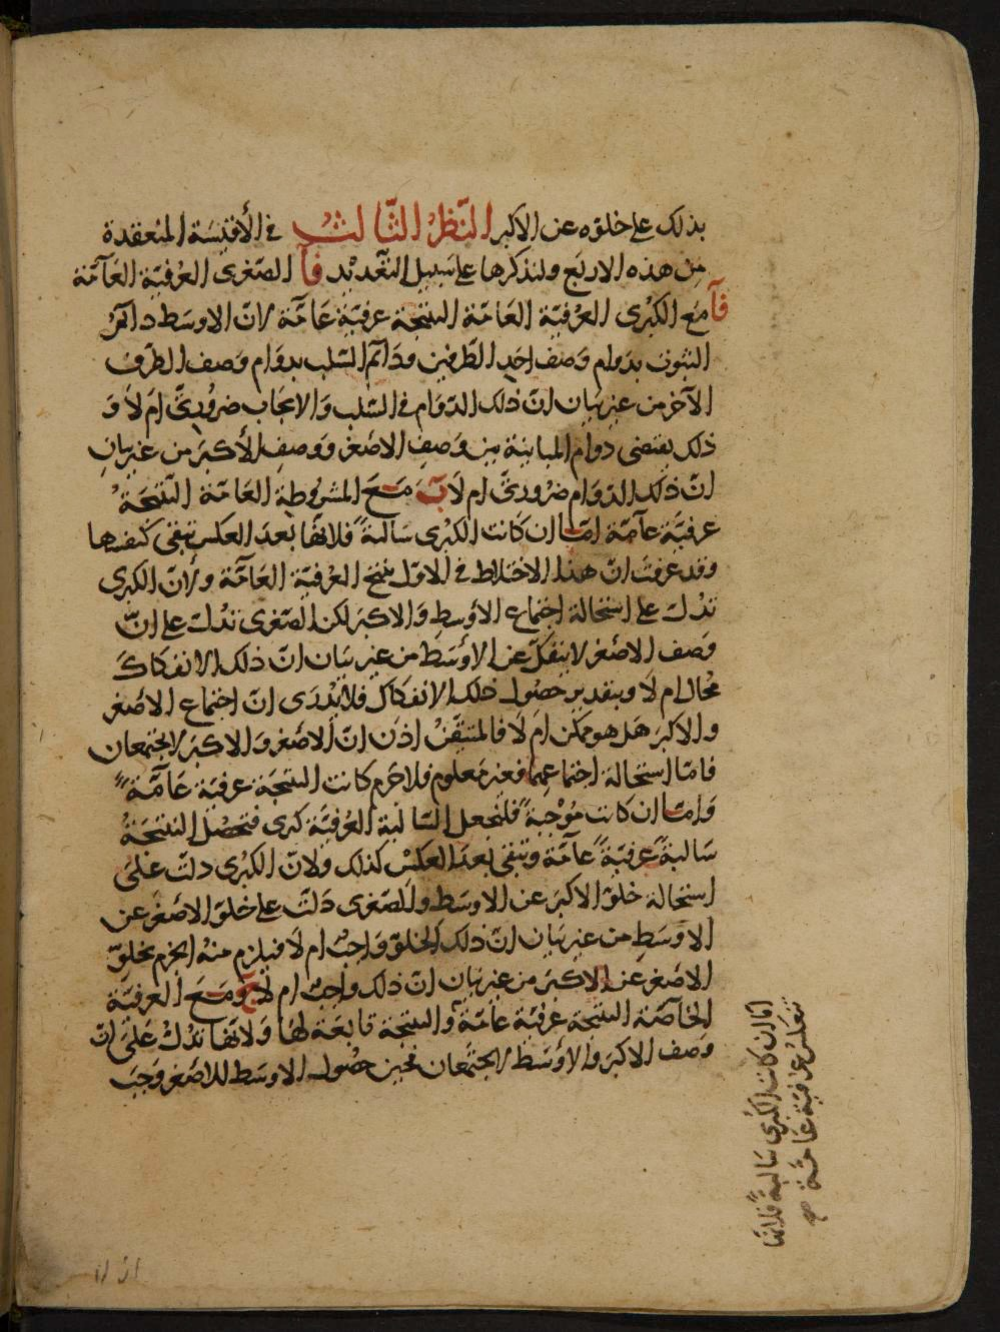 بذلك على خلوّه عن الاكبر النَّظَرُ الثَّالِثُ في الأقيسَة المنعقدة
مِن هذه الاربَع ولنذكرها على سَبيل التَّعْديْد فآ الصّغرى العُرفيّة العَآمّة
فآ مَع الكبْرى العُرْفيّة العَامّة النتيجة عرفيّة عَامّة لانّ الاوسَط دآئمُ
الثبُوت بدوام وَصف احَدِ الطَّرفَين ودَآئم السّلب بدوَام وَصف الطّرَف
الآخر من غير بيَان انّ ذلك الدّوَام في السّلب وَالايجَاب ضرُوريٌّ امَ لاَ وَ
ذلك يقتضى دوام المبَاينة بين وَصفِ الاصْغر ووصفِ الأكبَر من غير بيَانِ
انّ ذلك الدّوَام ضرُوريٌّ ام لاَ بَ مَعَ المشرُوطةِ العَامّة النّتيجَةُ
عرفيّة عآمّة امّا ان كَانت الكبْرى سَالبَةً فلانّها بَعدَ العكس تبقى كنفسِها
وقد عرفتَ انّ هذا الاختلاط في الاوّل ينتج العُرْفيّة العَامّة ولأنّ الكبرى
تدُلّ على استحالة اجتماع الاوْسَطِ وَالاكبَر لكن الصّغرى تدُلّ على انّ
وَصف الاصْغر لا ينفكّ عن الاوْسَط من غير بيَان انّ ذلك الانفكاكَ
مُحَال ام لَا وبتقدير حصُول ذلك الانفكاك فلا يُدْرَى انّ اجتماع الاصْغر
والاكبَر هَل هو ممكن امَ لَا فالمتيقّنُ اذَن انّ الاصْغر وَالاكبَر لا يجتمعان
فامّا استحالة اجتماعِهمَا فغير مَعلوم فلا جَرم كانت النتيجَة عرفيّة عَامّةً
وَامّا ان كانت مُوْجبةً فلنجعل السّالبة العُرْفيّة كبرى فتحصُل النتيجَةُ
سَالبةً عرفيّةً عآمّة وتبقى بعدَ العكسِ كذلك ولانّ الكبْرى دلّت عَلى
استحالة خلوّ الاكبَر عَن الاوسَط والصّغرى دَلّت على خلوّ الاصْغر عن
الاوسَطِ من غير بيَان انّ ذلك الخلوّ وَاجبٌ ام لَا فيلزم منهُ الجزم بخلوّ
الاصْغر عن الاكبَر من غير بيَان انّ ذلك وَاجبٌ ام لا جَ وَمَعَ العرفيّة
الخاصّة النتيجَة عرْفيّة عآمّة والنتيجة تابعَة لهَا وَلانّها تدُلّ عَلى انّ
وَصف الاكبَر والاوْسَط لا يجتمعان فحين حصُول الاوسَط للاصْغر وجَبَ
امّا ان كانت الكبْرى سَالبةً فلانّها
تنعكسُ عرفيّة عَامّة صح